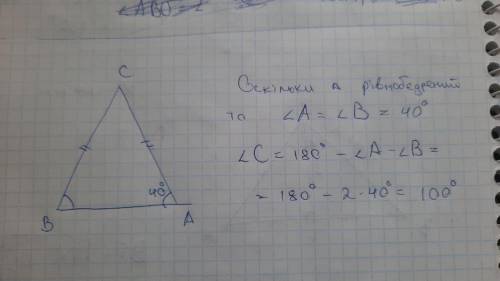 ∠ABO = 2
C
Оскільки △ рівнобедрений
то ∠A = ∠B = 40°
∠C = 180° - ∠A - ∠B =
= 180° - 2·40° = 100°
40°
B
A